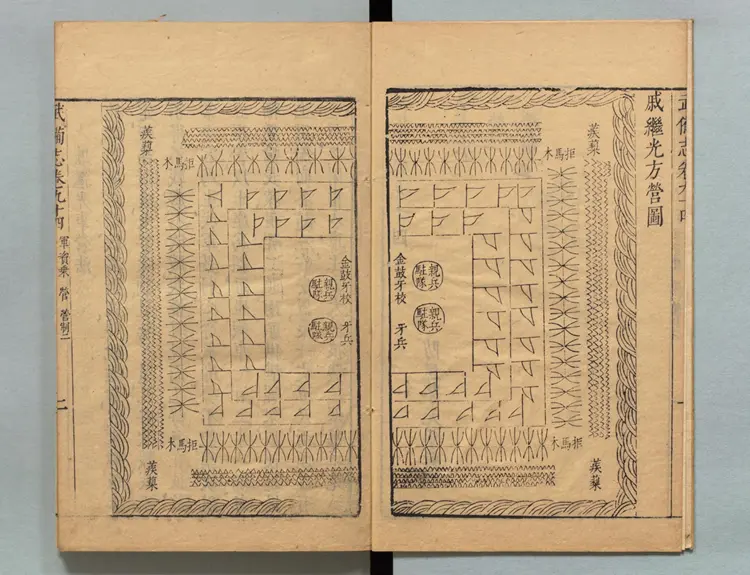 武備志卷九十四
戚繼光方營圖
蒺藜
拒馬木
金鼓牙校
親兵駐隊
親兵駐隊
牙兵
拒馬木
蒺藜
金鼓牙校
親兵駐隊
親兵駐隊
牙兵
拒馬木
蒺藜
拒馬木
蒺藜
武備志卷九十四 軍資乘 營 營制一
二